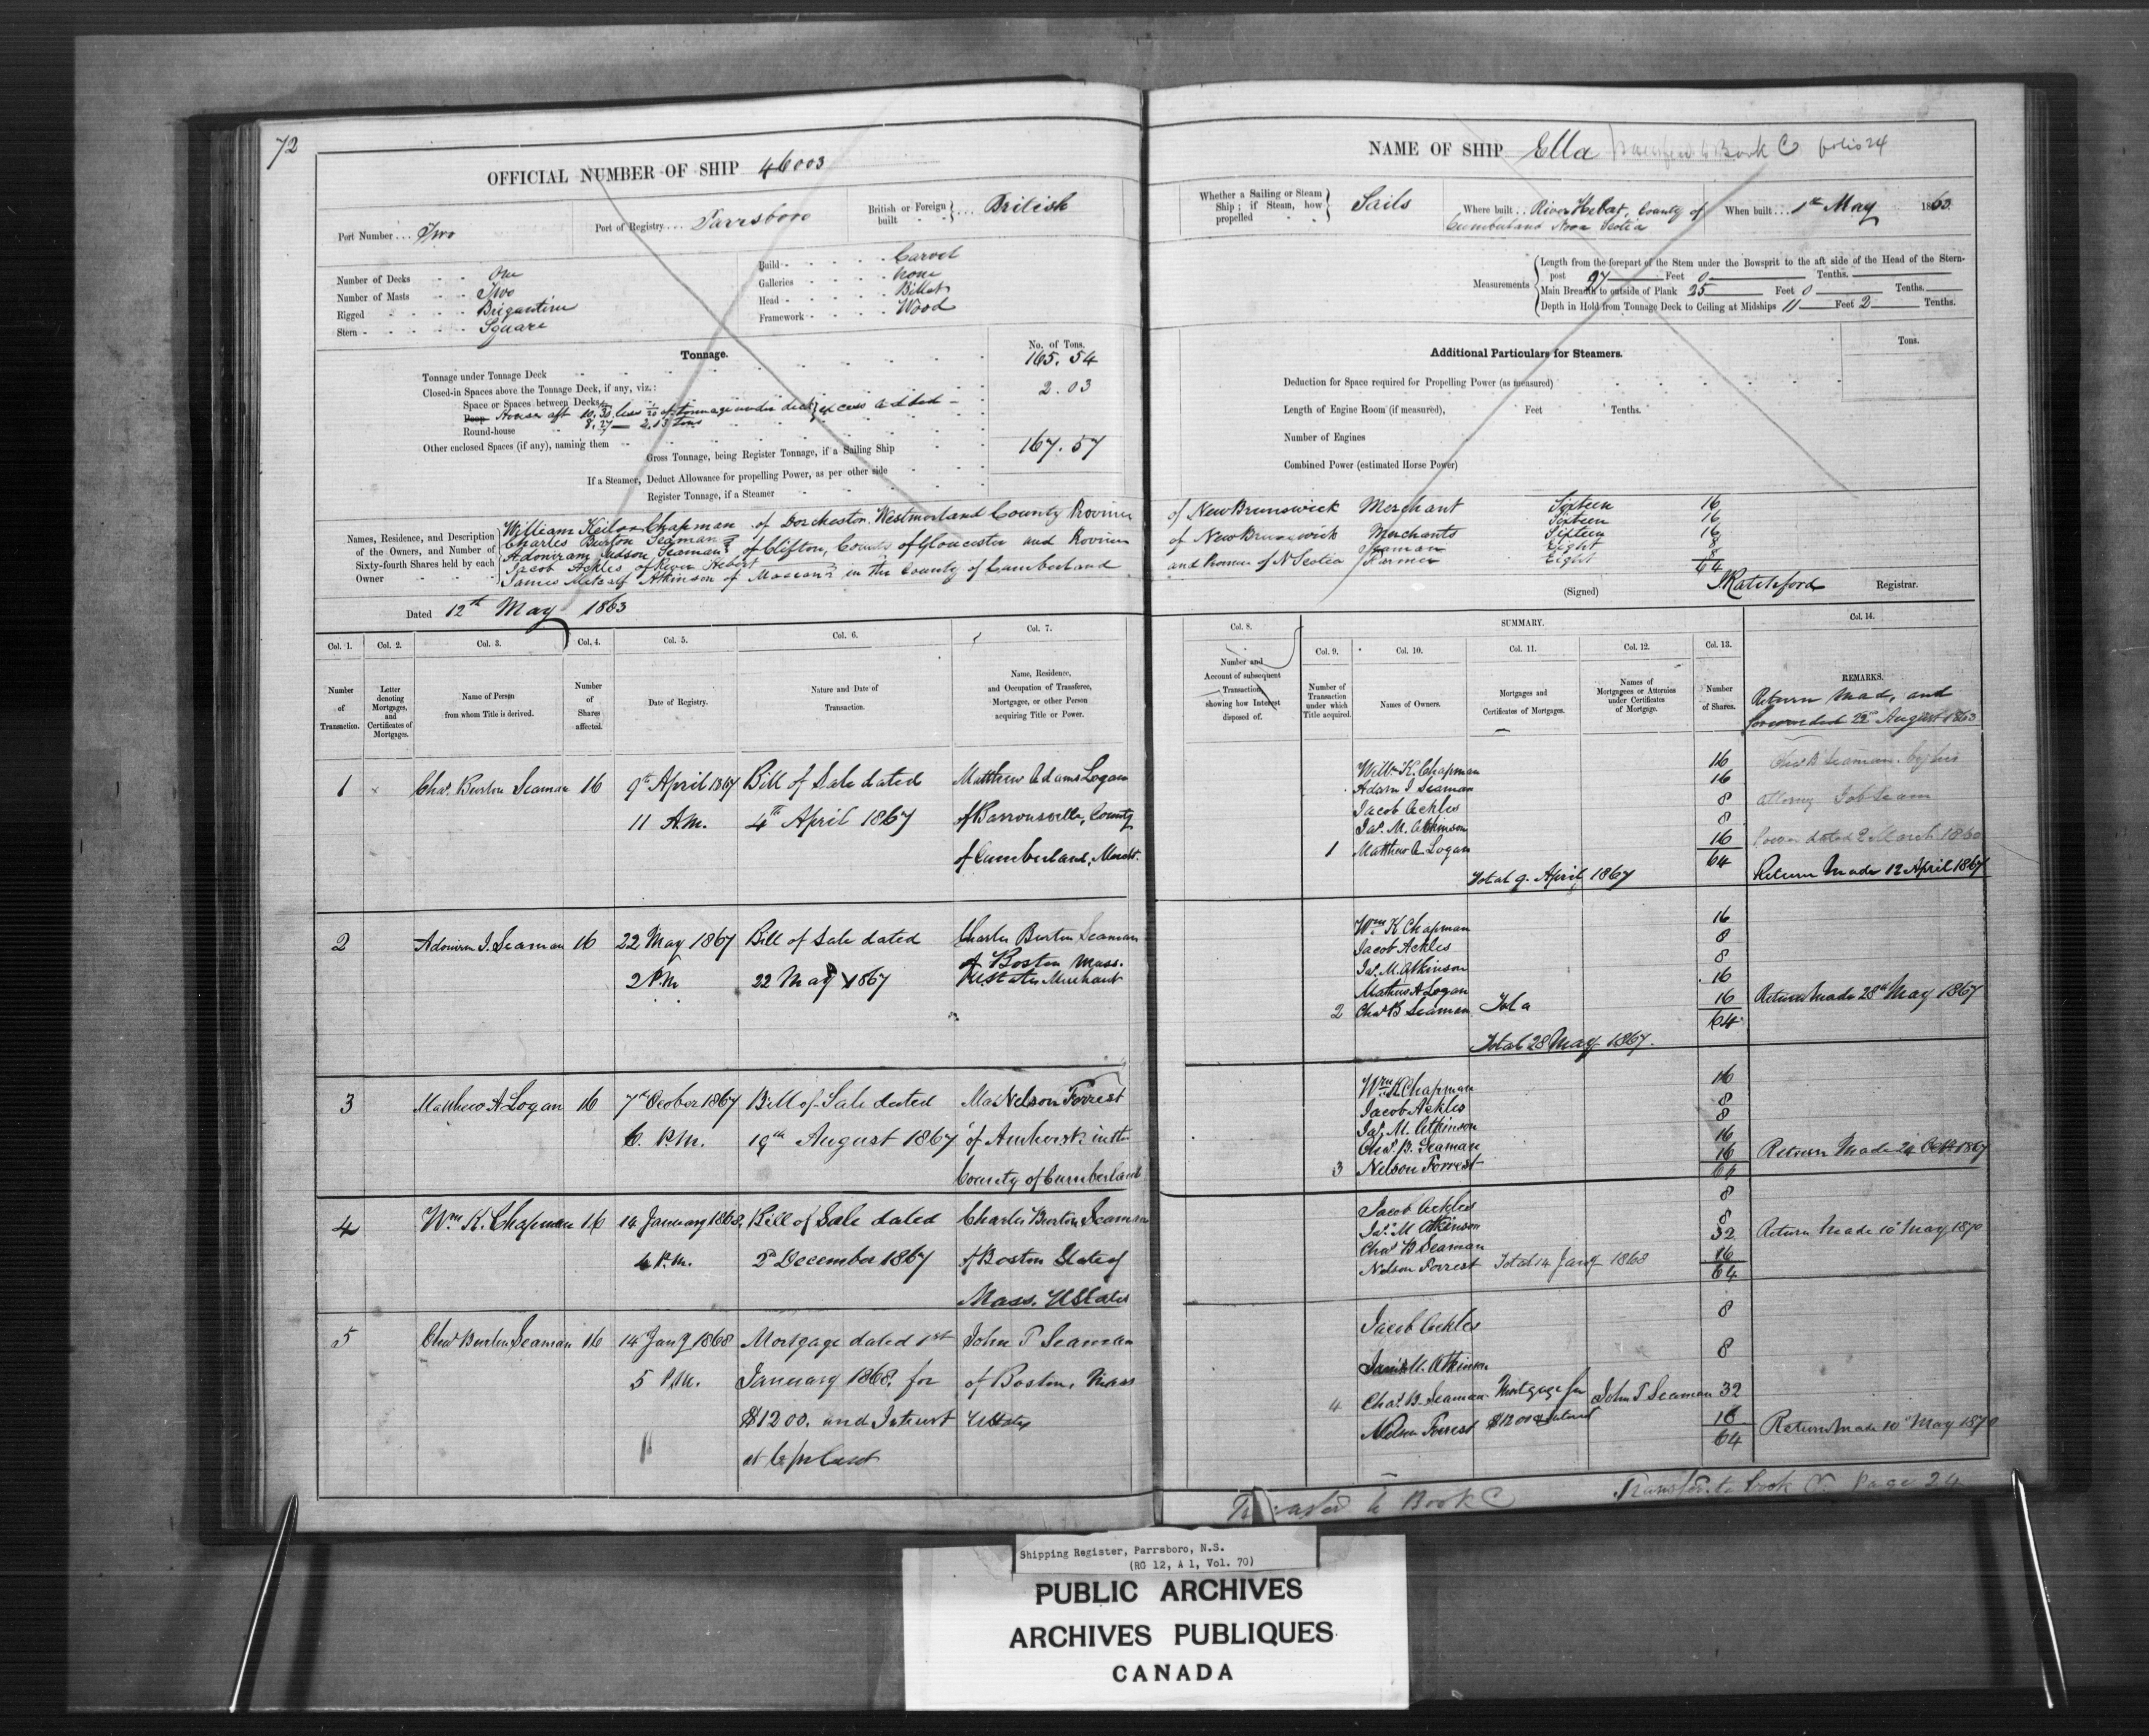 72
OFFICIAL NUMBER OF SHIP 46003
Port Number ... Two
Port of Registry ... Parrsboro
British or Foreign built ... British
Number of Decks One
Number of Masts Two
Rigged Brigantine
Stern Square
Build Carvel
Galleries None
Head Billet
Framework Wood
Tonnage.
No. of Tons.
Tonnage under Tonnage Deck 165.54
Closed-in Spaces above the Tonnage Deck, if any, viz.:
Space or Spaces between Decks 2.03
Poop House aft 10.30 less 1/20 of tonnage under deck excess added
Round-house 8.27 — 2.03 tons
Other enclosed Spaces (if any), naming them
Gross Tonnage, being Register Tonnage, if a Sailing Ship 167.57
If a Steamer, Deduct Allowance for propelling Power, as per other side
Register Tonnage, if a Steamer
Names, Residence, and Description of the Owners, and Number of Sixty-fourth Shares held by each Owner
William Keilor Chapman of Dorchester, Westmorland County Province
Charles Burton Seaman
Adoniram Judson Seaman of Clifton, County of Gloucester and Province
Jacob Ackles of River Hebert
James Metcalf Atkinson of Maccan in the County of Cumberland
Dated 12th May 1863
NAME OF SHIP Ella Transferred to Book C folio 24
Whether a Sailing or Steam Ship; if Steam, how propelled Sails
Where built ... River Hebert, County of Cumberland Nova Scotia
When built ... 1st May 1863
Measurements
Length from the forepart of the Stem under the Bowsprit to the aft side of the Head of the Stern-post 97 Feet 0 Tenths.
Main Breadth to outside of Plank 25 Feet 0 Tenths.
Depth in Hold from Tonnage Deck to Ceiling at Midships 11 Feet 2 Tenths.
Additional Particulars for Steamers.
Tons.
Deduction for Space required for Propelling Power (as measured)
Length of Engine Room (if measured), Feet Tenths.
Number of Engines
Combined Power (estimated Horse Power)
of New Brunswick Merchant Sixteen 16
Sixteen 16
of New Brunswick Merchants Sixteen 16
Seaman Eight 8
and Province of N Scotia Farmer Eight 8
64
(Signed) Ratchford Registrar.
Col. 1. Col. 2. Col. 3. Col. 4. Col. 5. Col. 6. Col. 7.
Number of Transaction.
Letter denoting Mortgages, and Certificates of Mortgages.
Name of Person from whom Title is derived.
Number of Shares affected.
Date of Registry.
Nature and Date of Transaction.
Name, Residence, and Occupation of Transferee, Mortgagee, or other Person acquiring Title or Power.
Col. 8.
Number and Account of subsequent Transaction showing how Interest disposed of.
SUMMARY.
Col. 9. Col. 10. Col. 11. Col. 12. Col. 13. Col. 14.
Number of Transaction under which Title acquired.
Names of Owners.
Mortgages and Certificates of Mortgages.
Names of Mortgagees or Attornies under Certificates of Mortgage.
Number of Shares.
REMARKS.
Return Made, and
forwarded 22nd August 1863
1 Chas. Burton Seaman 16 9th April 1867 Bill of Sale dated Matthew Adams Logan
11 A.M. 4th April 1867 of Barronsville, County
of Cumberland, Mercht.
Willm K. Chapman 16
Adorn J Seaman 16
Jacob Ackles 8
Jas. M. Atkinson 8
1 Matthew A Logan 16
64
Total 9. April 1867
Chas B Seaman. by his
attorney Job Seaman
Power dated 2 March 1860
Return Made 12 April 1867
2 Adonirm J. Seaman 16 22 May 1867 Bill of Sale dated Charles Burton Seaman
of Boston Mass.
2 P.M 22 May 1867 U States Merchant
Wm K Chapman 16
Jacob Ackles 8
Jas. M. Atkinson 8
Mathew A Logan 16
2 Chas B Seaman 16
64
Total 28 May 1867.
Return Made 28th May 1867
3 Matthew A Logan 16 7th October 1867 Bill of Sale dated Nelson Forrest
6. P.M. 19th August 1867 of Amherst in the
County of Cumberland
Wm K Chapman 16
Jacob Ackles 8
Jas. M. Atkinson 8
Chas. B. Seaman 16
3 Nelson Forrest 16
64
Return Made 24 Octr 1867
4 Wm K. Chapman 16 14 January 1868, Bill of Sale dated Charles Burton Seaman
4 P.M. 2d December 1867 of Boston State of
Mass. U States
Jacob Ackles 8
Jas. M Atkinson 8
Chas B Seaman 32
Nelson Forrest 16
Total 14 Jany 1868 64
Return Made 10 May 1870
5 Chas Burton Seaman 16 14 Jany 1868 Mortgage dated 1st John T Seaman
5 P.M. January 1868. for of Boston, Mass
$1200. and Interest U States
at 6 pr Cent
Jacob Ackles 8
James M. Atkinson 8
4 Chas. B. Seaman Mortgage for John T Seaman 32
Nelson Forrest $1200 & Interest 16
64
Return Made 10th May 1870
Transferred to Book C
Transfd. to Book C. Page 24
Shipping Register, Parrsboro, N.S.
(RG 12, A 1, Vol. 70)
PUBLIC ARCHIVES
ARCHIVES PUBLIQUES
CANADA